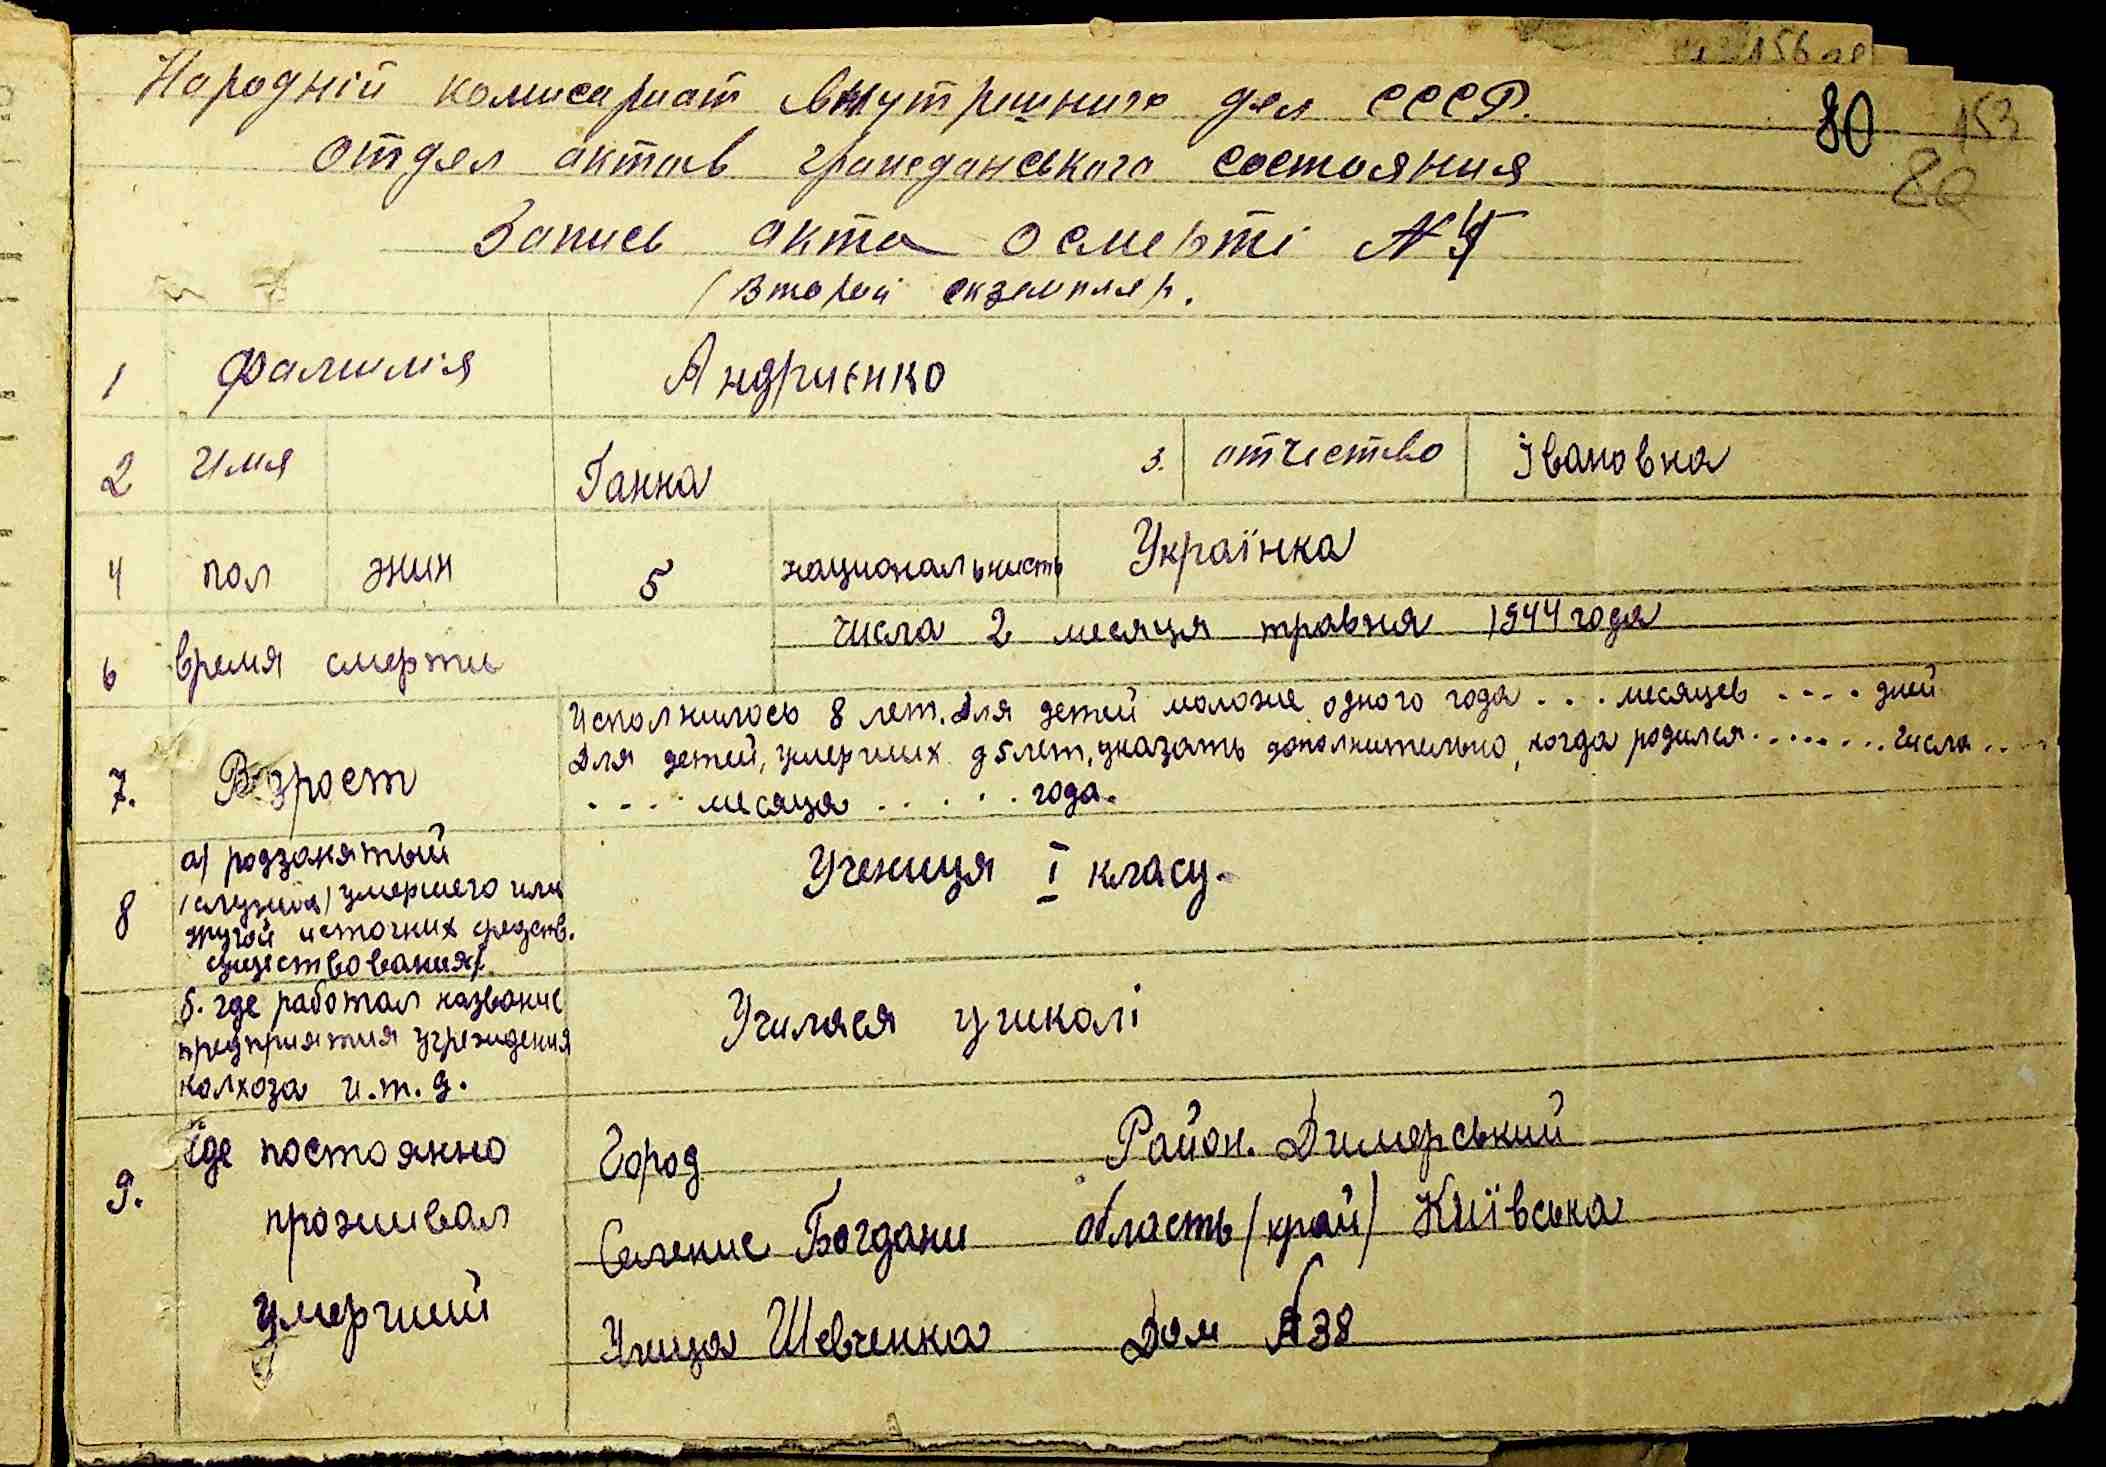 153
80
80
Народній комисариат внутрешнего дел СССР.
отдел актов гражеданського состояния
Запись акта осмерті №
(Второй екземпляр.
1 Фамилия Андриєнко
2 имя Ганна 3. отчество Івановна
4 пол жин 5 национальность Українка
6 время смерти числа 2 месяця травня 1944 года
7. Возрост Исполнилось 8 лет. Для детей моложе одного года . . . месяцев . . . . дней
Для детей, умерших д 5 лет, указать дополнительно, когда родился . . . . . . . . числа . . . .
. . . . месяця . . . . . . года.
8 а) родзанятый
(служба) умершего или
другой источних средств.
существования). Учениця I класу.
б. где работал название
предприятия учреждения
колхоза и.т.д. Училася ушколі
9. где постоянно
проживал
умерший
Город Район. Димерський
Селение Богдани область (край) Київська
Улица Шевченка Дом №38